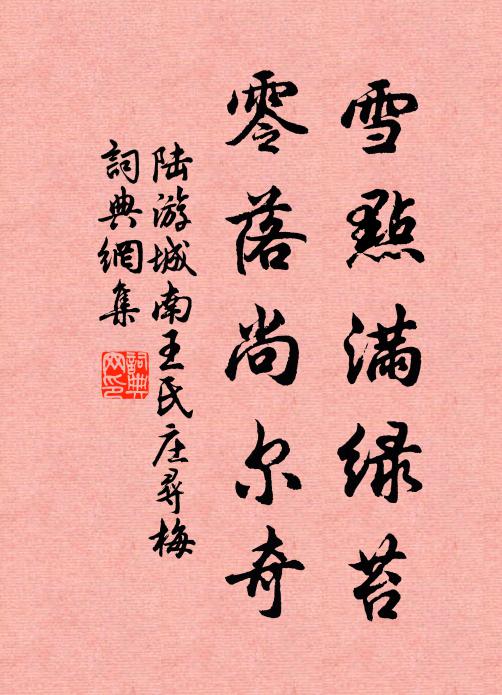 雪點滿绿苔
零落尚尔奇
陆游城南王氏庄尋梅
詞典網集
詞典
网印